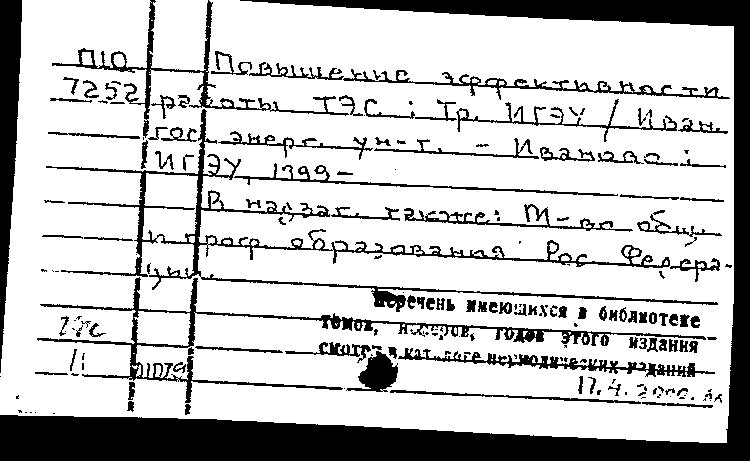 П10 Повышение эффективности
7252 работы ТЭС : Тр. ИГЭУ / Иван.
гос. энерг. ун-т. - Иваново :
ИГЭУ, 1999-
В надзаг. также: М-во общ.
и проф. образования Рос. Федера-
ции.
Перечень имеющихся в библиотеке
томов, номеров, годов этого издания
смотри в каталоге периодических изданий
11
17.4.2000.